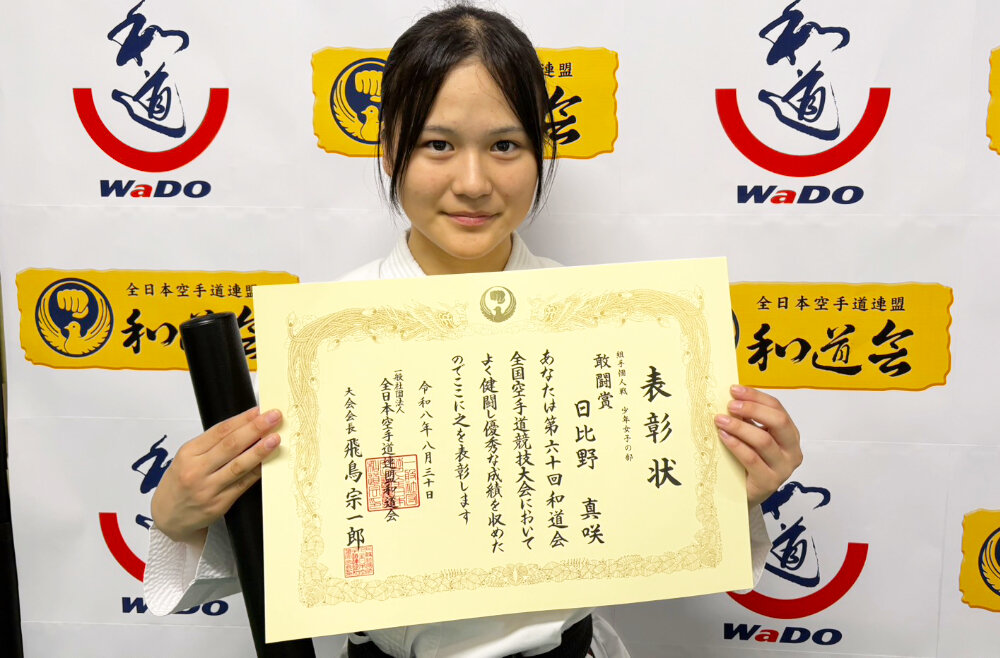 和道
WaDO
連盟
会
和道
WaDO
全日本空手道連盟
和道会
全日本空手道連盟
和道会
表彰状
組手個人戦 少年女子の部
敢闘賞
日比野 真咲
あなたは第六十回和道会
全国空手道競技大会において
よく健闘し優秀な成績を収めた
のでここに之を表彰します
令和八年八月三十日
一般社団法人
全日本空手道連盟和道会
大会会長 飛鳥宗一郎
WaDO
和道
WaDO